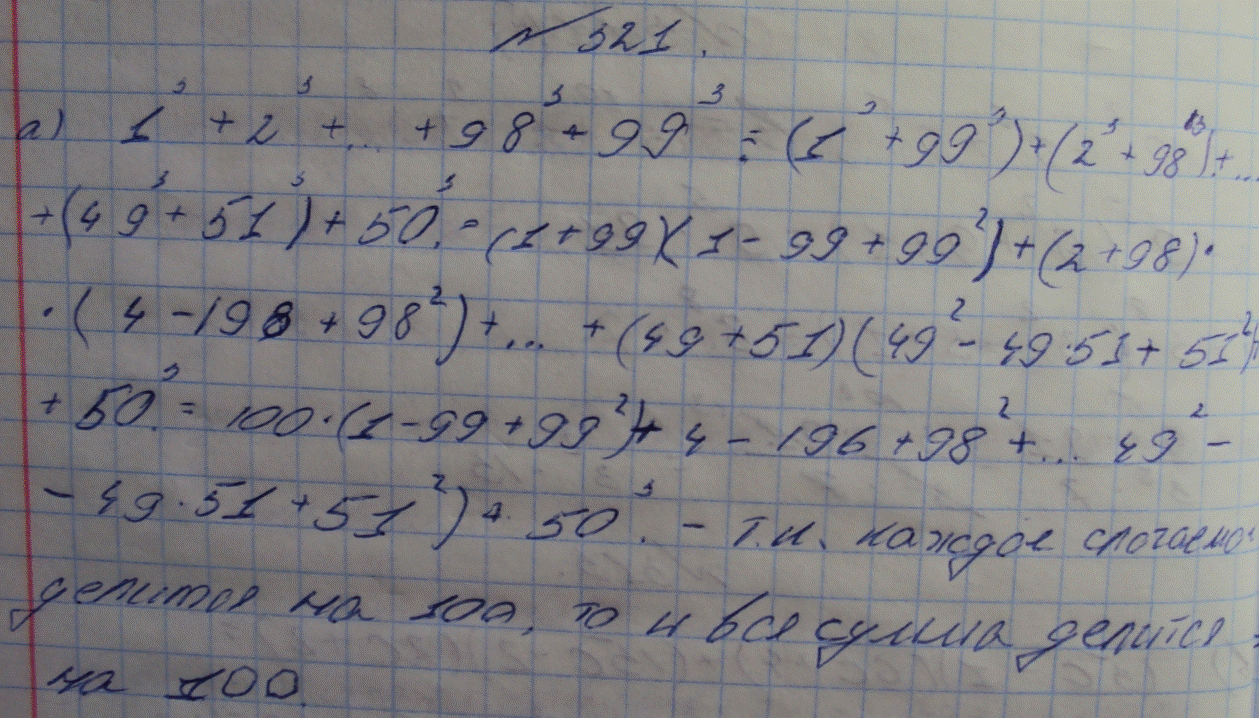 № 321.
а) 1³ + 2³ + ... + 98³ + 99³ = (1³ + 99³) + (2³ + 98³) + ...
+ (49³ + 51³) + 50³. = (1 + 99)(1 - 99 + 99²) + (2 + 98) ·
· (4 - 196 + 98²) + ... + (49 + 51)(49² - 49·51 + 51²) +
+ 50³. = 100·(1 - 99 + 99²) + 4 - 196 + 98² + ... 49² -
- 49·51 + 51²) + 50³. - т.к. каждое слогаемое
делится на 100, то и вся сумма делится
на 100.